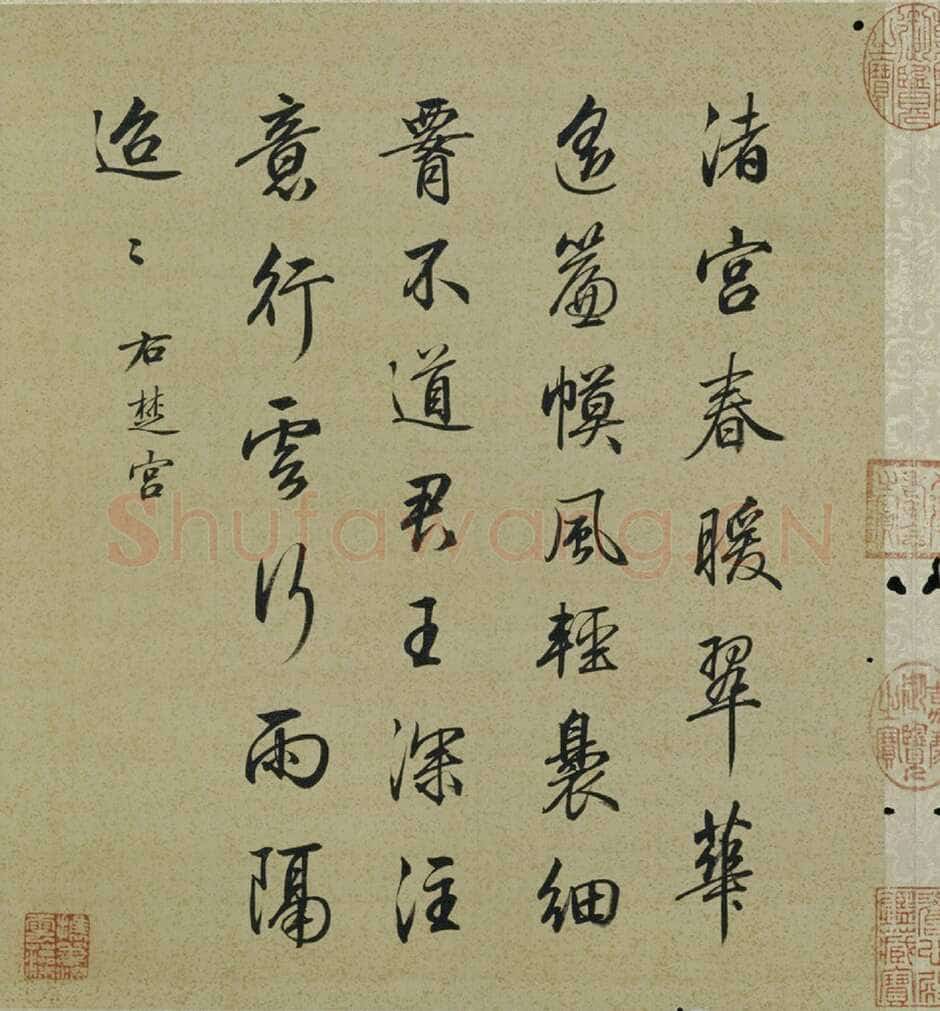 渚宮春暖翠華
遙簾幙風輕裊細
腰不道君王深注
意行雲行雨隔
迢〻
右楚宮
Shufawang.CN